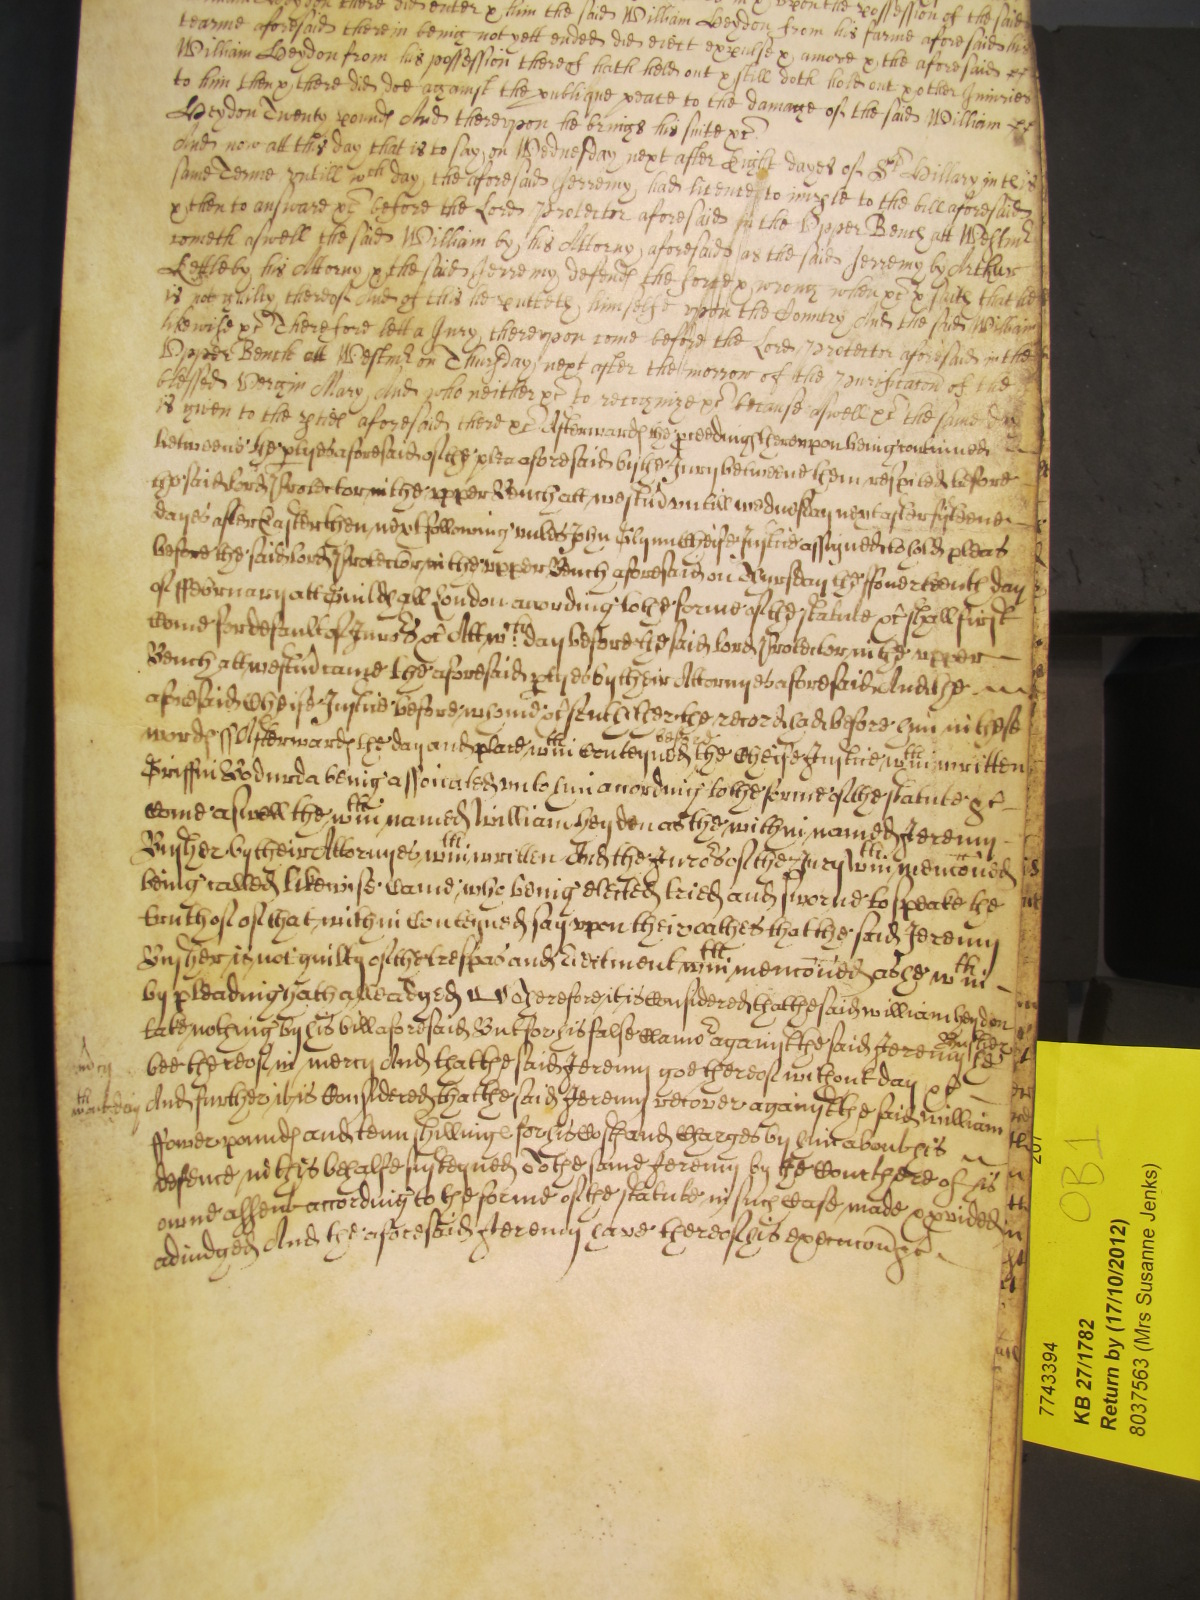 William Heydon there did enter & him the said William Heydon from his farme aforesaid his
tearme aforesaid therein being not yett ended did eiect expulse & amove & the aforesaid
William Heydon from his possession thereof hath held out & still doth hold out & other Iniuries
to him then & there did doe against the publique peace to the damage of the said William
Heydon Twenty pounds And thereupon he brings his suite &c
And now att this day that is to say on Wednesday next after Eight dayes of St Hillary in this
same Terme untill wch day the aforesaid Jerremy had licence to imple to the bill aforesaid
& then to answare &c before the Lord Protector aforesaid in the Upper Bench att Westmr
cometh aswell the said William by his Attorny aforesaid as the said Jerremy by Arthur
Kettleby his Attorny & the said Jerremy defends the force & wrong when &c & saith that he
is not guilty thereof And of this he putteth himselfe upon the Country And the said William
likewise &c Therefore lett a Jury thereupon come before the Lord Protector aforesaid in the
Upper Bench att Westmr on Thursday next after the morrow of the Purificacon of the
blessed Vergin Mary And who neither &c to recognize &c because aswell &c the same day
is given to the pties aforesaid there &c Afterwards the pceedings thereupon being continued
betweene the ptyes aforesaid of the plea aforesaid by the Jury betweene them respited before
the said lord Protector in the upper Bench att westm untill wednesday next after fifteene
dayes after Easter then next following unles John Glynn Cheife Justice assigned to hold pleas
before the said lord Protector in the upper Bench aforesaid on Thursday the ffowerteenth day
of ffebruary att Guildhall London acording to the forme of the statute &c shall first
come for default of Jurors &c Att wch day before the said lord Protector in the upper
Bench att westm came the aforesaid ptyes by their Attornyes aforesaid And the
aforesaid Cheife Justice before whome &c sent hither the record had before him in these
words ss Afterwards the day and place wthin conteyned before the Cheife Justice wthin written
Griffin Bodurda being associated unto him acording to the forme of the statute &c
come aswell the wthin named William heydon as the within named Jeremy
Busher by their Attornyes wthin written And the Jurors of the Jury wthin menconed
being called likewise came who being elected tried and sworne to speake the
truth of of that within conteyned say upon their oathes that the said Jeremy
Busher is not guilty of the trespas and Eiectment wthin menconed as he wthin
by pleading hath alleadged Therefore it is considered that the said william heydon
take nothing by his bill aforesaid But for his false clamor against the said Jeremy Busher he
bee thereof in mercy And that the said Jeremy goe thereof without day &c
mcy
And further it is considered that the said Jeremy recover against the said william
wthout day
ffower pounds and tenn shillings for his costs and charges by him about his
defence in this behalfe susteyned To the same Jeremy by the Court here of his
owne assent according to the forme of the statute in such case made & provided
adiudged And the aforesaid Jeremy have thereof his execucon &c
7743394
OB1
KB 27/1782
Return by (17/10/2012)
8037563 (Mrs Susanne Jenks)